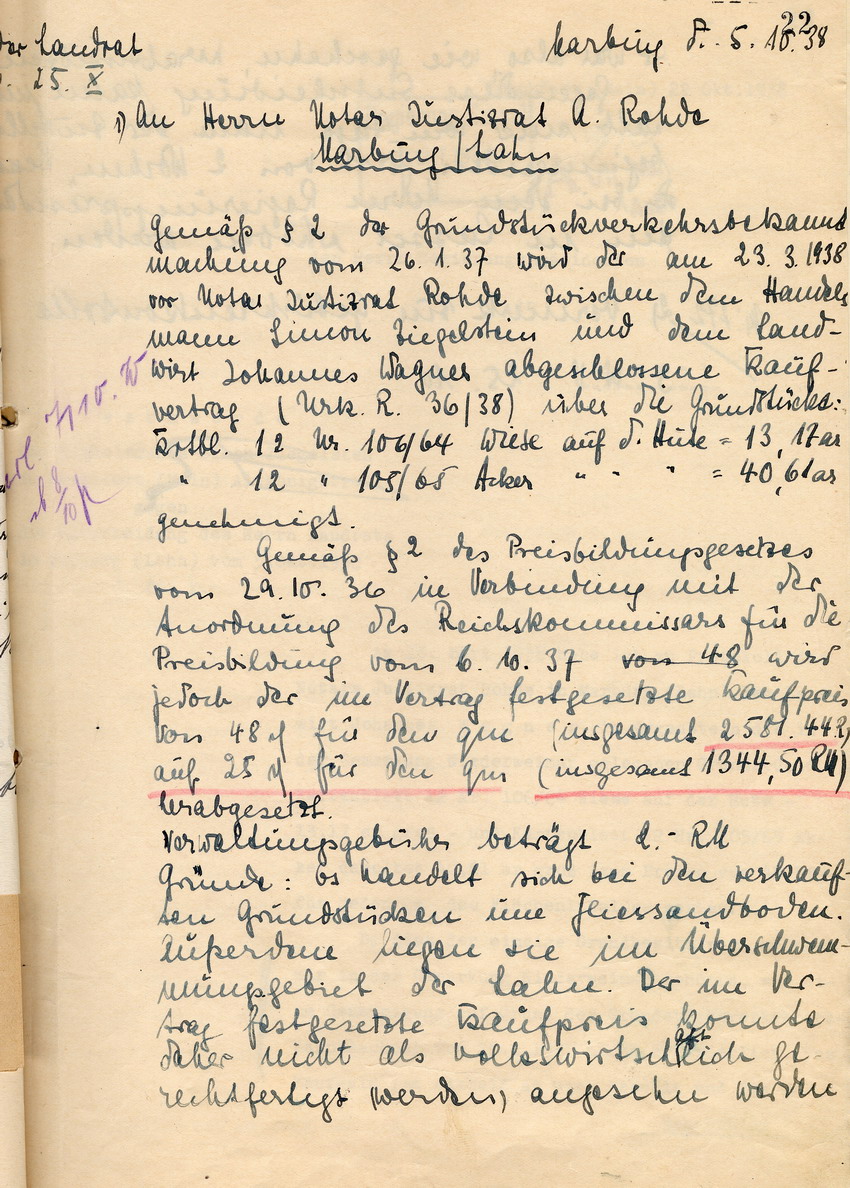 der Landrat
25. X
Marburg d. 5. 10. 38
22
1) An Herrn Notar Justizrat A. Rohde
Marburg/Lahn
Gemäß § 2 der Grundstückverkehrsbekannt
machung vom 26. 1. 37 wird der am 23. 3. 1938
vor Notar Justizrat Rohde zwischen dem Handels
mann Simon Ziegelstein und dem Land-
wirt Johannes Wagner abgeschlossene Kauf-
vertrag (Urk. R. 36/38) über die Grundstücke:
Krtbl. 12 Nr. 106/64 Wiese auf d. Hute = 13,17 ar
" 12 " 105/65 Acker " " " = 40,61 ar
genehmigt.
Gemäß § 2 des Preisbildungsgesetzes
vom 29. 10. 36 in Verbindung mit der
Anordnung des Reichskommissars für die
Preisbildung vom 6. 10. 37 von 48 wird
jedoch der im Vertrag festgesetzte Kaufpreis
von 48 ₰ für den qm (insgesamt 2581.44 R)
auf 25 ₰ für den qm (insgesamt 1344,50 RM)
herabgesetzt.
Verwaltungsgebühr beträgt 2.- RM
Gründe: Es handelt sich bei den verkauf-
ten Grundstücken um Fliessandboden.
Außerdem liegen sie im Überschwem-
mungsgebiet der Lahn. Der im Ver-
trag festgesetzte Kaufpreis konnte
daher nicht als volkswirtschaftlich ge-
rechtfertigt (werden) angesehn werden